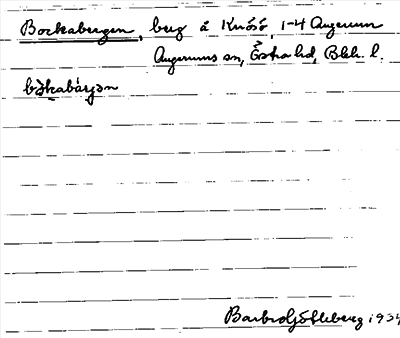 Bockabergen, berg å Knösö, 1-4 Augerum
Augerums sn, Östra hd, Blek. l.
Barbro Götleberg 1934